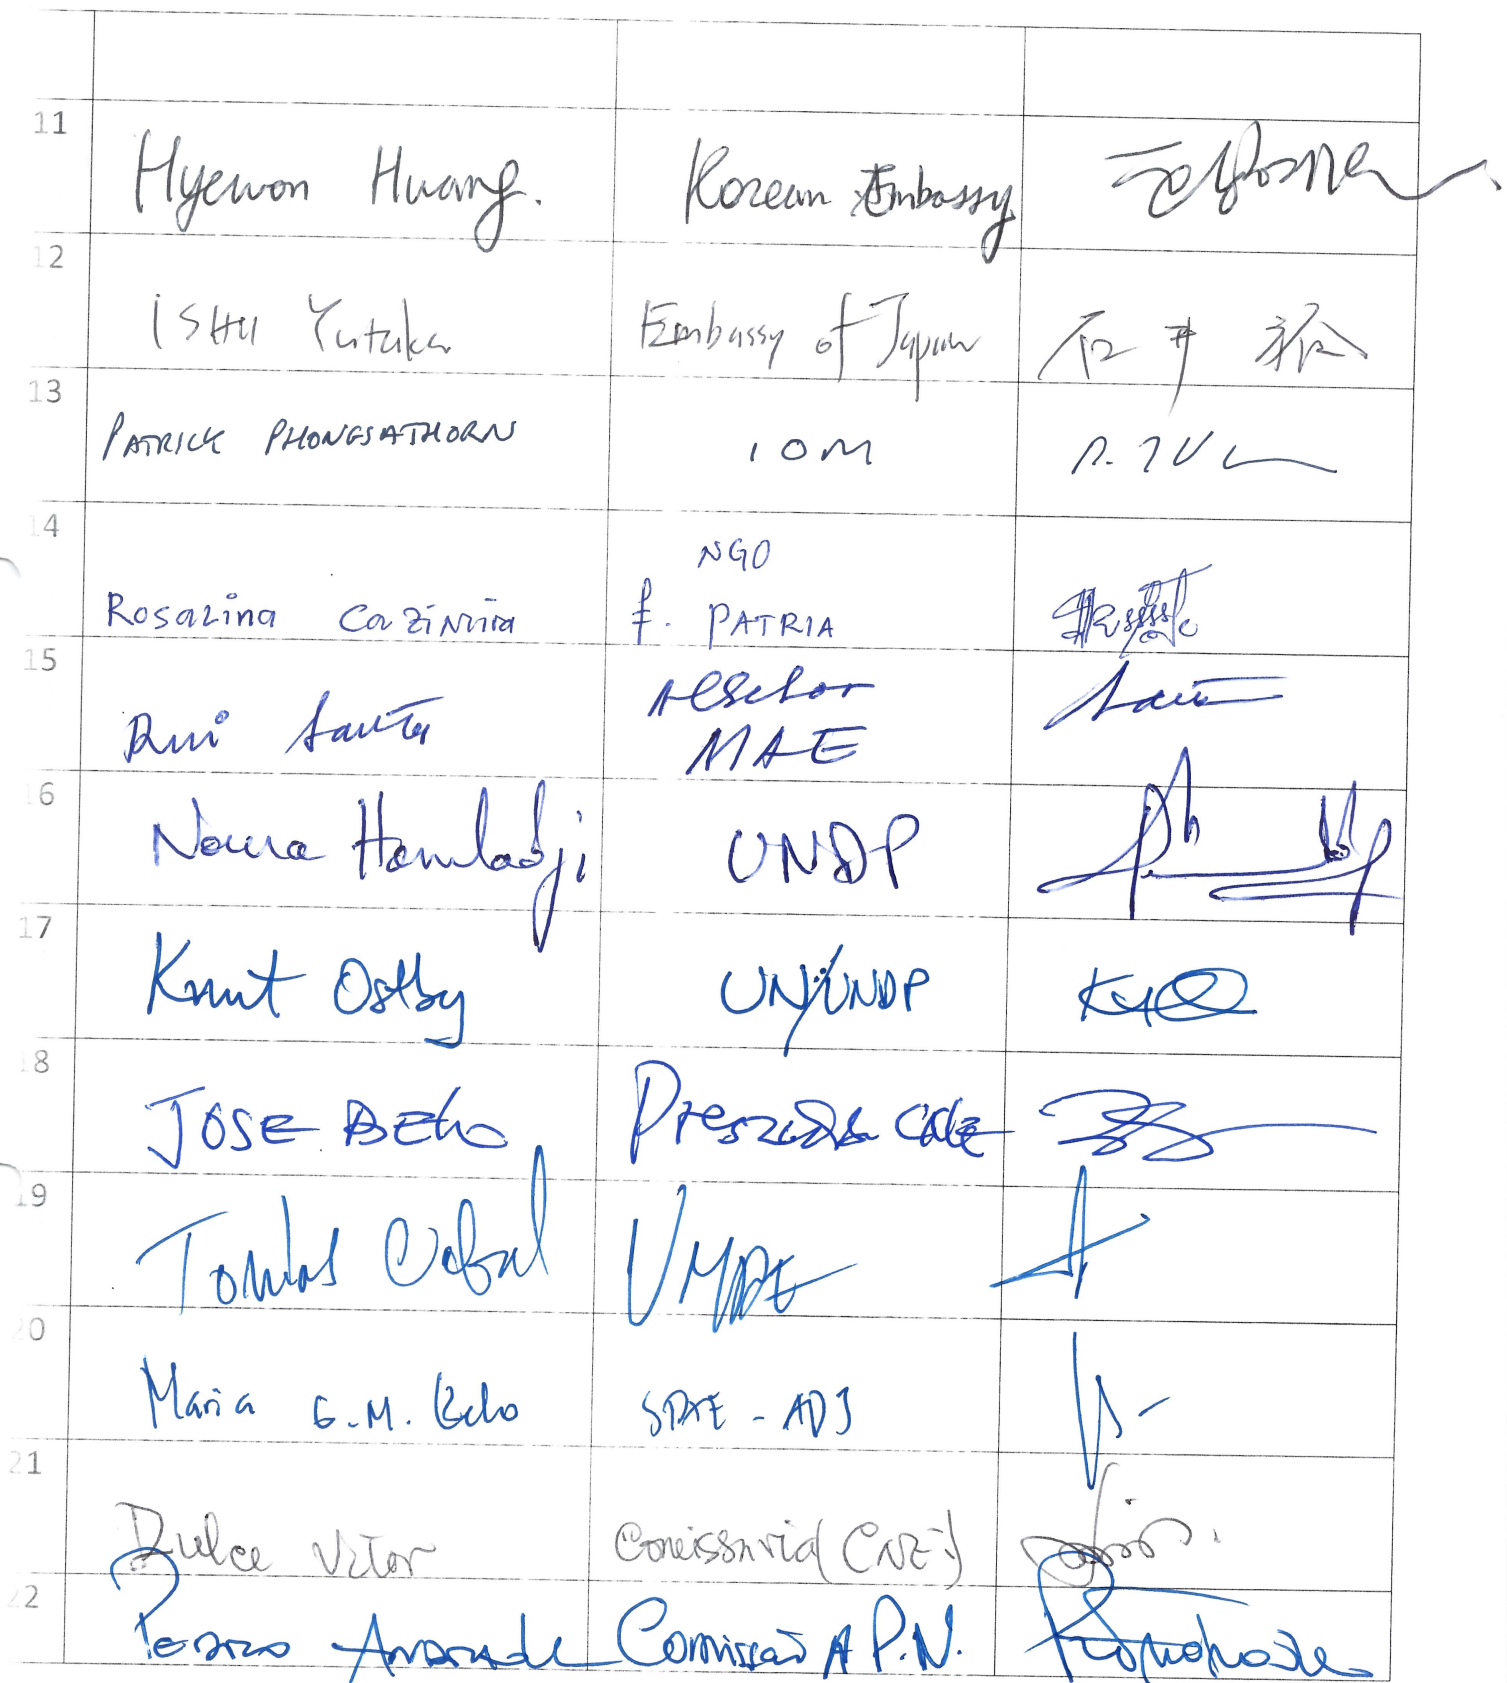 11
Hyewon Huang. Korean Embassy
12
ISHII Yutaka Embassy of Japan 石井 裕
13
PATRICK PHONGSATHORN IOM
14
NGO
Rosalina F. PATRIA
15
Assesor
Rui MAE
16
Noura Hamladji UNDP
17
Knut Ostby UN/UNDP
18
JOSE BELO CNE
19
Tomás Cabral
20
Maria G.M. Belo STAE - ADJ
21
Dulce Vitor Comissaria (CNE)
22
Andrade Comissão A P.N.